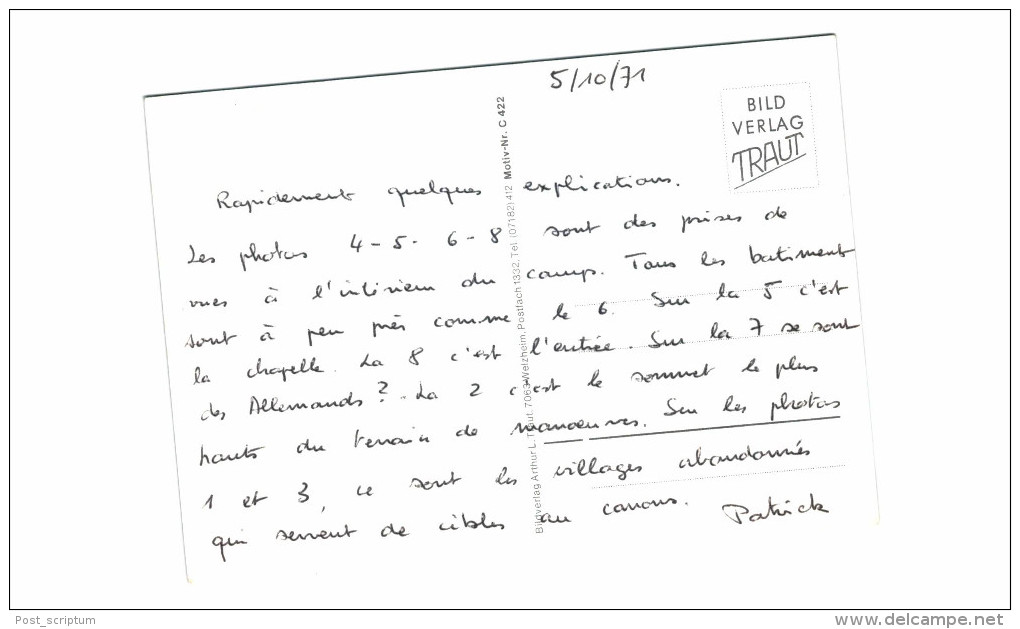 5/10/71
BILD
VERLAG
TRAUT
Rapidement quelques explications.
Les photos 4-5-6-8 sont des prises de
vues à l'intérieur du camp. Tous les batiments
sont à peu près comme le 6. Sur la 5 c'est
la chapelle. La 8 c'est l'entrée. Sur la 7 se sont
des Allemands? La 2 c'est le sommet le plus
hauts du terrain de manoeuvres. Sur les photos
1 et 3, ce sont les villages abandonnés
qui servent de cibles au canons. Patrick
Bildverlag Arthur L. Traut, 7063 Welzheim, Postfach 1332, Tel. (07182) 412 Motiv-Nr. C 422
Post_scriptum
www.delcampe.net